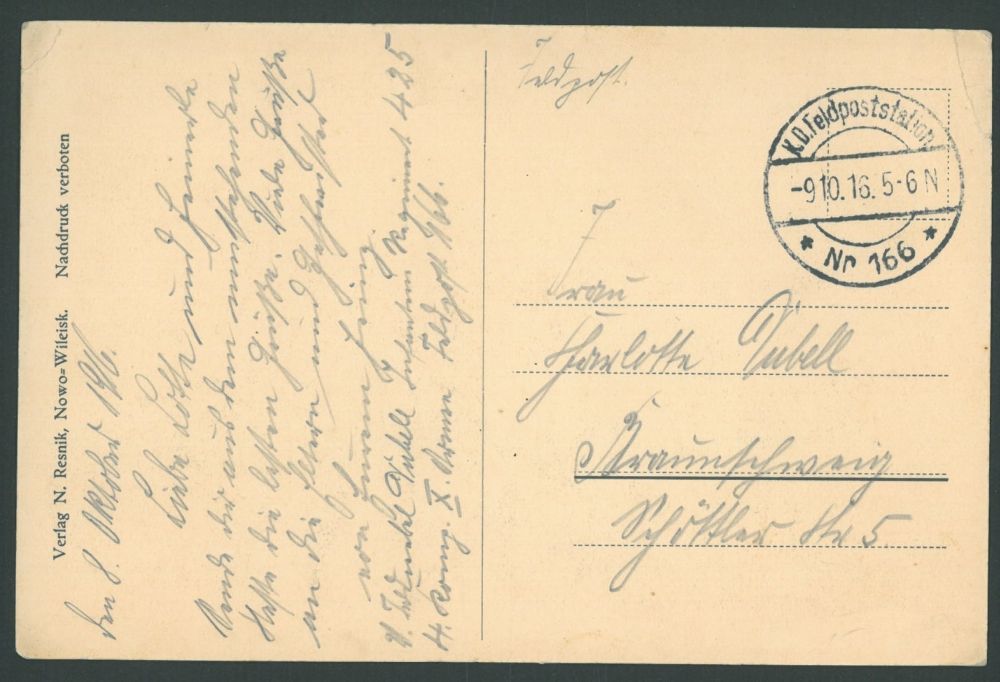 Verlag N. Resnik, Nowo=Wileisk. Nachdruck verboten
den 8. Oktober 1916.
Liebe Lotte und Heinerle
Sende dir aus dem
Kaffe die besten Grüße. Viele Grüße
an die Eltern und Geschwister
von Eurem
Infantrie Regiment 425
4. Komp. X. Armee Feldpost 966.
Feldpost.
K.D. Feldpoststation
-9.10.16. 5-6 N
* Nr 166 *
Frau
Charlotte Gubell
Braunschweig
Schöttler Str 5.